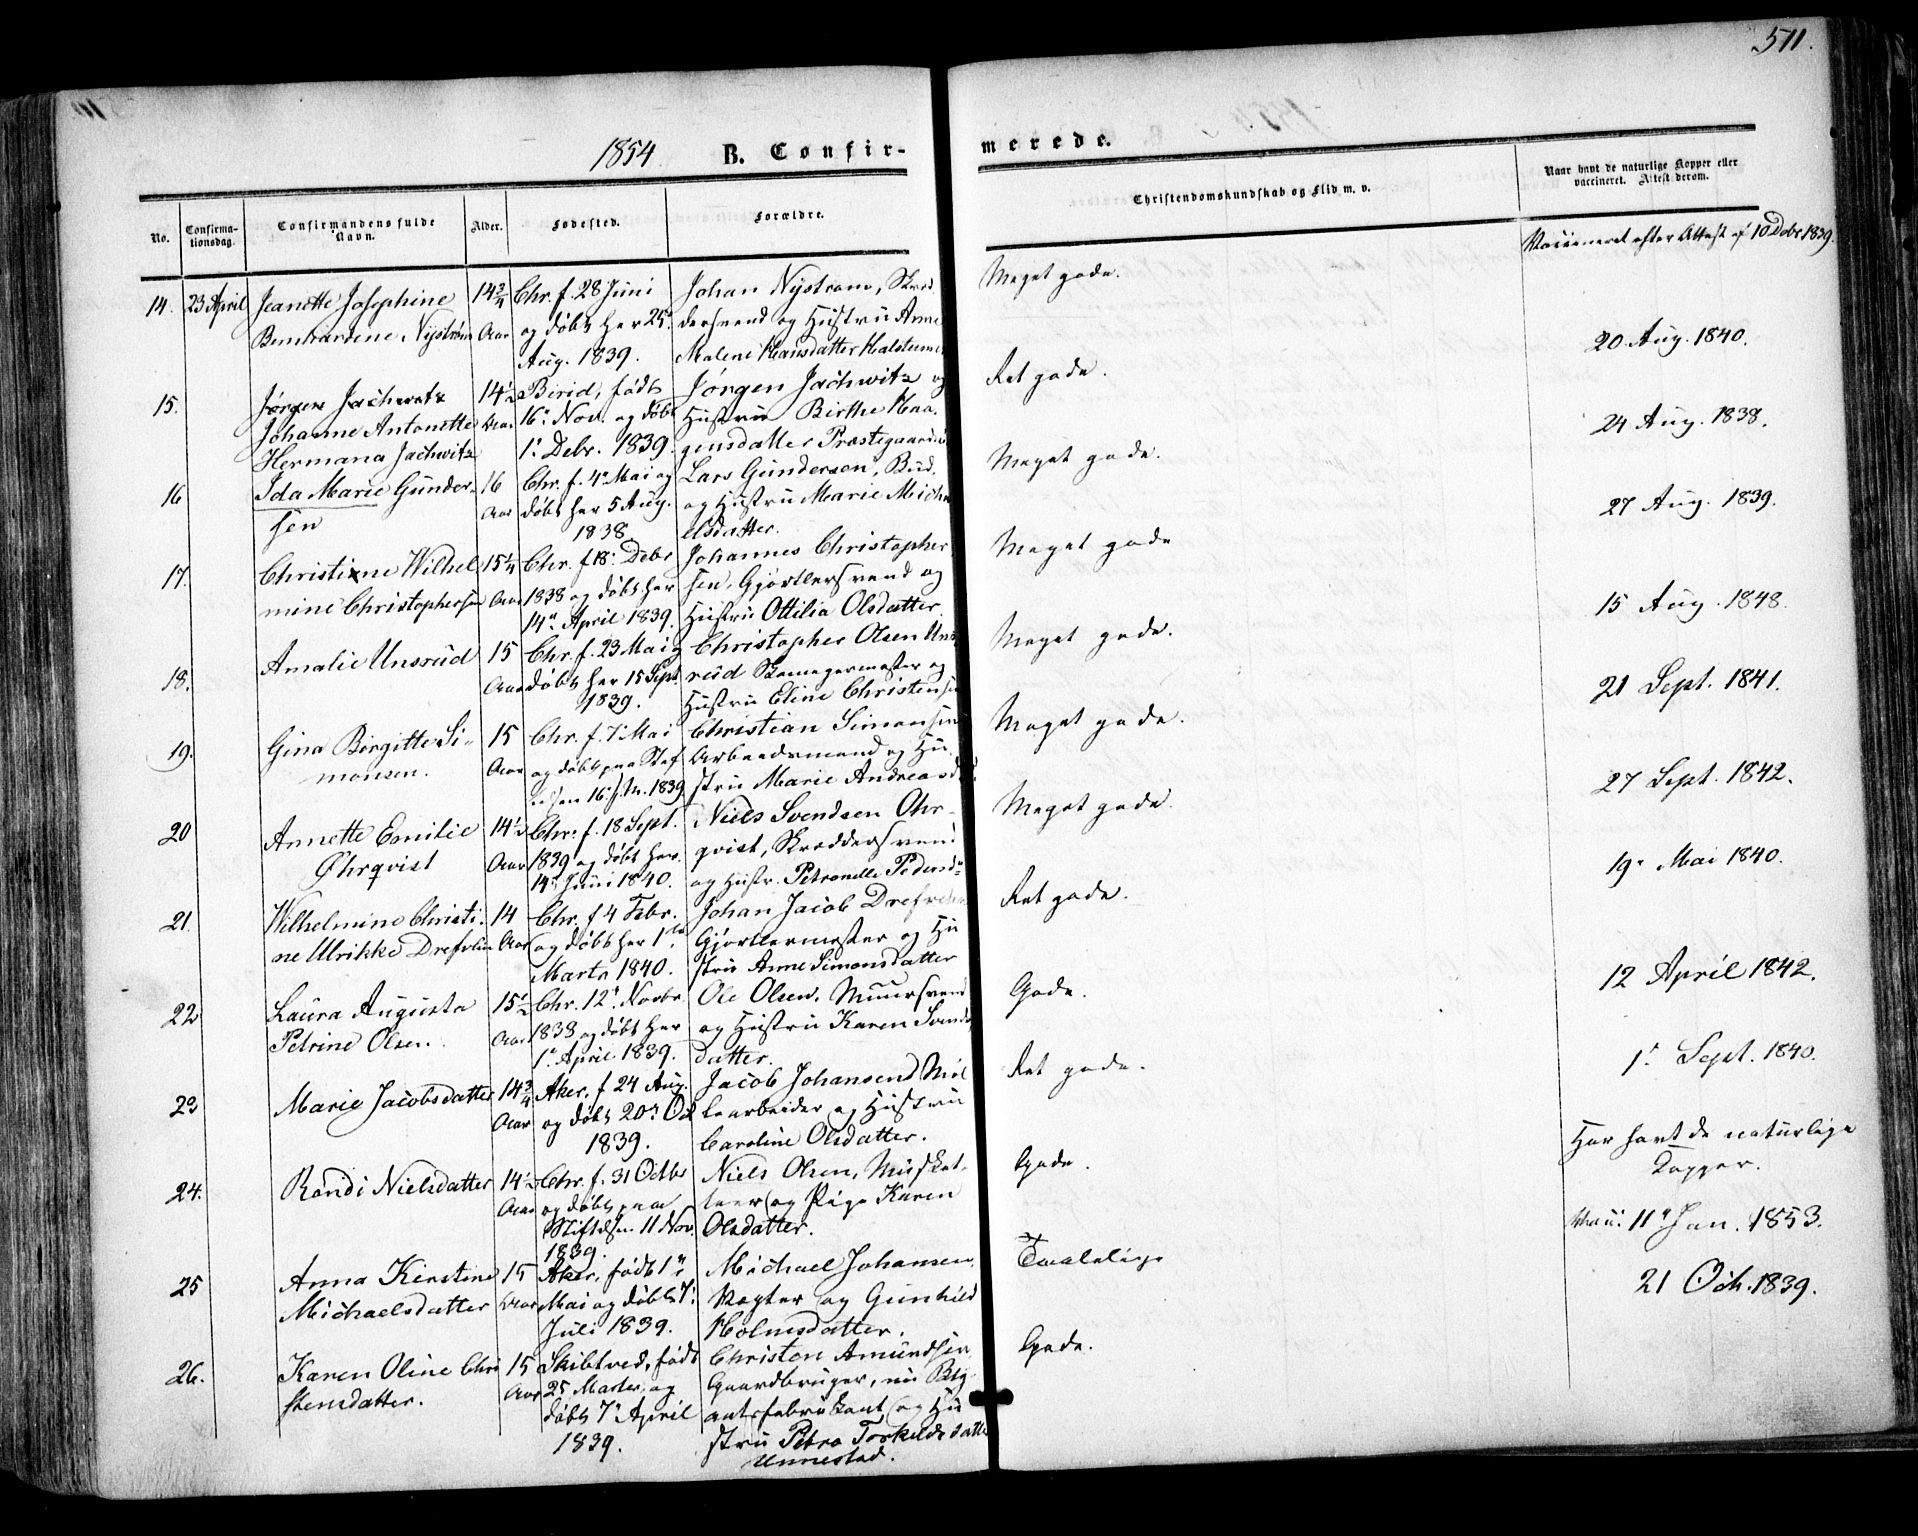 511.
1854 B. Confir-
merede.
No.
Confirma-
tionsdag.
Confirmandens fulde
Navn.
Alder.
Fødested.
Forældre.
Christendomskundskab og Flid m. v.
Naar havt de naturlige Kopper eller
vaccineret. Attest derom.
14. 23 April
Jeanette Josephine
Bernhardene Nystrøm
14 3/4
Aar
Chr. f. 28 Juni
og døbt her 25
Aug. 1839.
Johan Nystrøm, Skræd
dersvend og Hustru Anne
Malene Hansdatter
Meget gode.
Vaccineret efter Attest af 10 Debr 1839.
15.
Jørgen Jachwitz
Johanne Antonette
Hermana Jachwitz
14 1/2
Aar
Birid, født
16 Nov. og døbt
1. Debr. 1839.
Jørgen Jachwitz og
Hustru Birthe Haa
gensdatter Præstegaarden
Ret gode.
20 Aug. 1840.
16
Ida Marie Gunder-
sen
16
Aar
Chr. f. 4 Mai og
døbt her 5 Aug.
1838
Lars Gundersen, Bud,
og Hustru Marie Micha
elsdatter.
Meget gode.
24 Aug. 1838.
17.
Christine Wilhel
mine Christophersen
15 1/4
Aar
Chr. f 18. Debr
1838 og døbt her
14 April 1839.
Johannes Christopher
sen, Gjørtlersvend og
Hustru Ottilia Olsdatter.
Meget gode
27 Aug. 1839.
18.
Amalie Unsrud
15
Aar
Chr. f. 23 Mai og
døbt her 15 Sept
1839.
Christopher Olsen Uns
rud Skomagermester og
Hustru Eline Christensen
Meget gode.
15 Aug. 1848.
19.
Gina Birgitte Si-
monsen.
15
Aar
Chr. f. 7 Mai
og døbt paa Stif
telsen 16 1839
Christian Simonsen
Arbeidsmand og Hu
stru Marie Andreasd
Meget gode.
21 Sept. 1841.
20
Annette Emilie
Øhrqvist
14 1/2
Aar
Chr. f. 18 Sept.
1839 og døbt her
14 Juni 1840.
Niels Svendsen Ohr-
qvist, Skræddersvend
og Hustr. Petronelle Pedersd
Meget gode.
27 Sept. 1842.
21
Wilhelmine Christi-
ne Ulrikke Drefvelin
14
Aar
Chr. f 4 Febr.
og døbt her 1
Marts 1840.
Johan Jacob Drefvelin
Gjørtlermester og Hu
stru Anne Simonsdatter
Ret gode.
19. Mai 1840.
22
Laura Augusta
Petrine Olsen.
15 1/2
Aar
Chr. 12 Novbr.
1838 og døbt her
1 April 1839.
Ole Olsen, Muursvend
og Hustru Karen Svends
datter.
Gode.
12 April 1842.
23
Marie Jacobsdatter
14 3/4
Aar
Aker, f 24 Aug.
og døbt 20 Oct
1839.
Jacob Johansen, Møl
learbeider og Hustru
Caroline Olsdatter.
Ret gode.
1. Sept. 1840.
24.
Randi Nielsdatter
14 1/2
Aar
Chr. f. 31 Octbr
og døbt paa
Stiftelsen 11 Nov.
1839.
Niels Olsen, Musket-
teer og Pige Karen
Olsdatter.
Gode.
Har havt de naturlige
Kopper.
25
Anna Kirstine
Michaelsdatter
15
Aar
Aker, født 1
Mai og døbt 7
Juli 1839.
Michael Johansen,
Vægter og Gunhild
Holmsdatter.
Taalelige
Vacc. 11 Jan. 1853.
26.
Karen Oline Chri
stensdatter.
15
Aar
Skibtved, født
25 Marts og
døbt 7 April
1839.
Christen Amundsen,
Gaardbruger, nu Bryg
fabrikant og Hu
stru Petra Torkildsdatter
Unnestad.
Gode.
21 Oct. 1839.